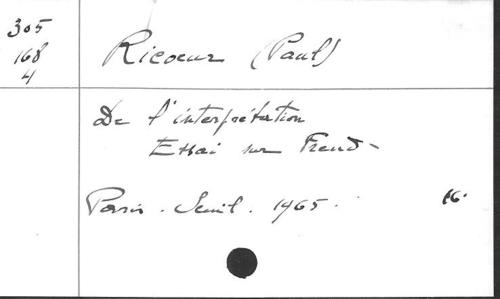 305
168
4
Ricoeur (Paul)
De l'interprétation
Essai sur Freud-
Paris. Seuil. 1965.
16.